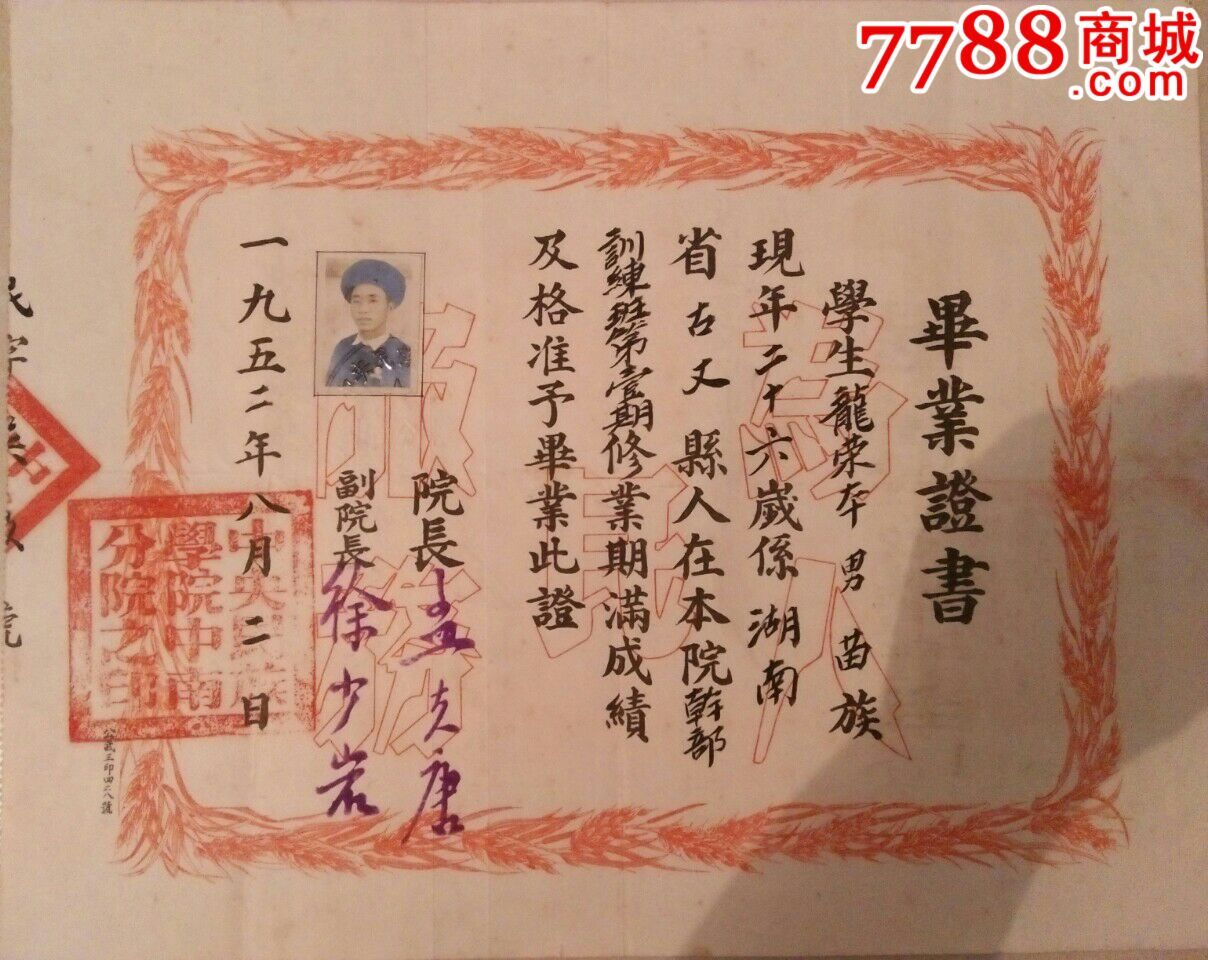 7788商城
.com
畢業證書
學生龍荣本男苗族
現年二十六歲係湖南
省古丈縣人在本院幹部
訓練班第壹期修業期滿成績
及格准予畢業此證
為人民服務
院長孟夫唐
副院長徐少岩
一九五二年八月二日
中央民族
學院中南
分院之印
民字第號
公武三印四二八號